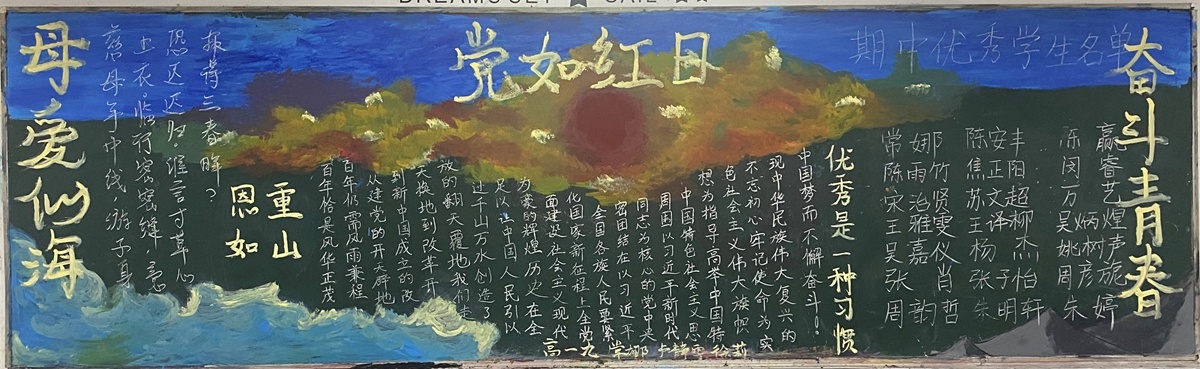 DREAMS SET ★ SAIL ★★
母爱似海
慈母手中线,游子身
上衣。临行密密缝,意
恐迟迟归。谁言寸草心
报得三春晖?
恩如
重山
党如红日
百年恰是风华正茂
百年仍需风雨兼程
从建党的开天辟地
到新中国成立的改
天换地到改革开
放的翻天覆地我们走
过千山万水创造了
足以让中国人民引以
为豪的辉煌历史在全
面建设社会主义现代
化国家新征程上全党
全国各族人民要紧
密团结在以习近平
同志为核心的党中央
周围以习近平新时代
中国特色社会主义思
想为指导高举中国特
色社会主义伟大旗帜
不忘初心牢记使命为实
现中华民族伟大复兴的
中国梦而不懈奋斗!
高一九 常娜
优秀是一种习惯
期中优秀学生名单
常娜
陈雨竹
宋治贤
王雅雯
吴嘉仪
张肖
周韵哲
陈安丰
焦正阳
苏文超
王译柳
杨杰
张子怡
朱明轩
奋斗青春